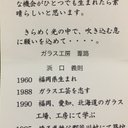 な機会がひとつでも生まれたら素
晴らしいと思います。
きらめく光の中で、吹き込む息
に願いを込めて・・・。
ガラス工房
浜口義則
1960 福岡県生まれ
1988 ガラス工芸を志す
1990 福岡、愛知、北海道のガラス
工場、工房にて学ぶ